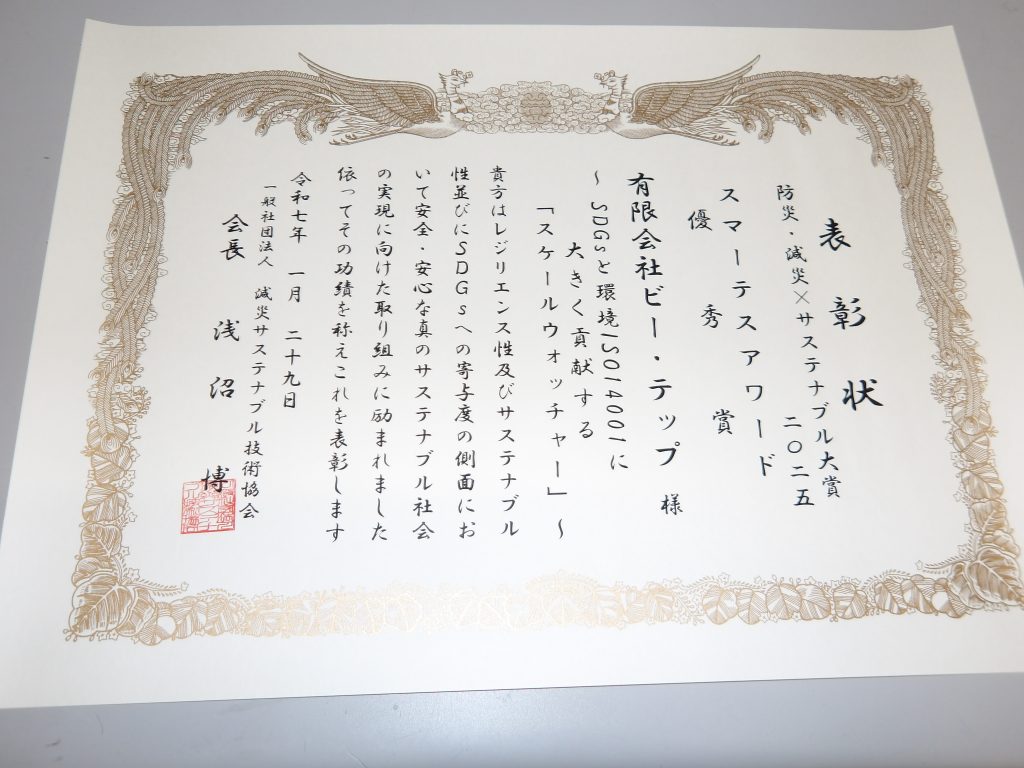 表彰状
防災・減災×サステナブル大賞
二〇二五
スマーテスアワード
優秀賞
有限会社ビー・テップ 様
～SDGsと環境ISO14001に
大きく貢献する
「スケールウォッチャー」～
貴方はレジリエンス性及びサステナブル
性並びにSDGsへの寄与度の側面にお
いて安全・安心な真のサステナブル社会
の実現に向けた取り組みに励まれました
依ってその功績を称えこれを表彰します
令和七年 一月 二十九日
一般社団法人 減災サステナブル技術協会
会長 浅沼 博